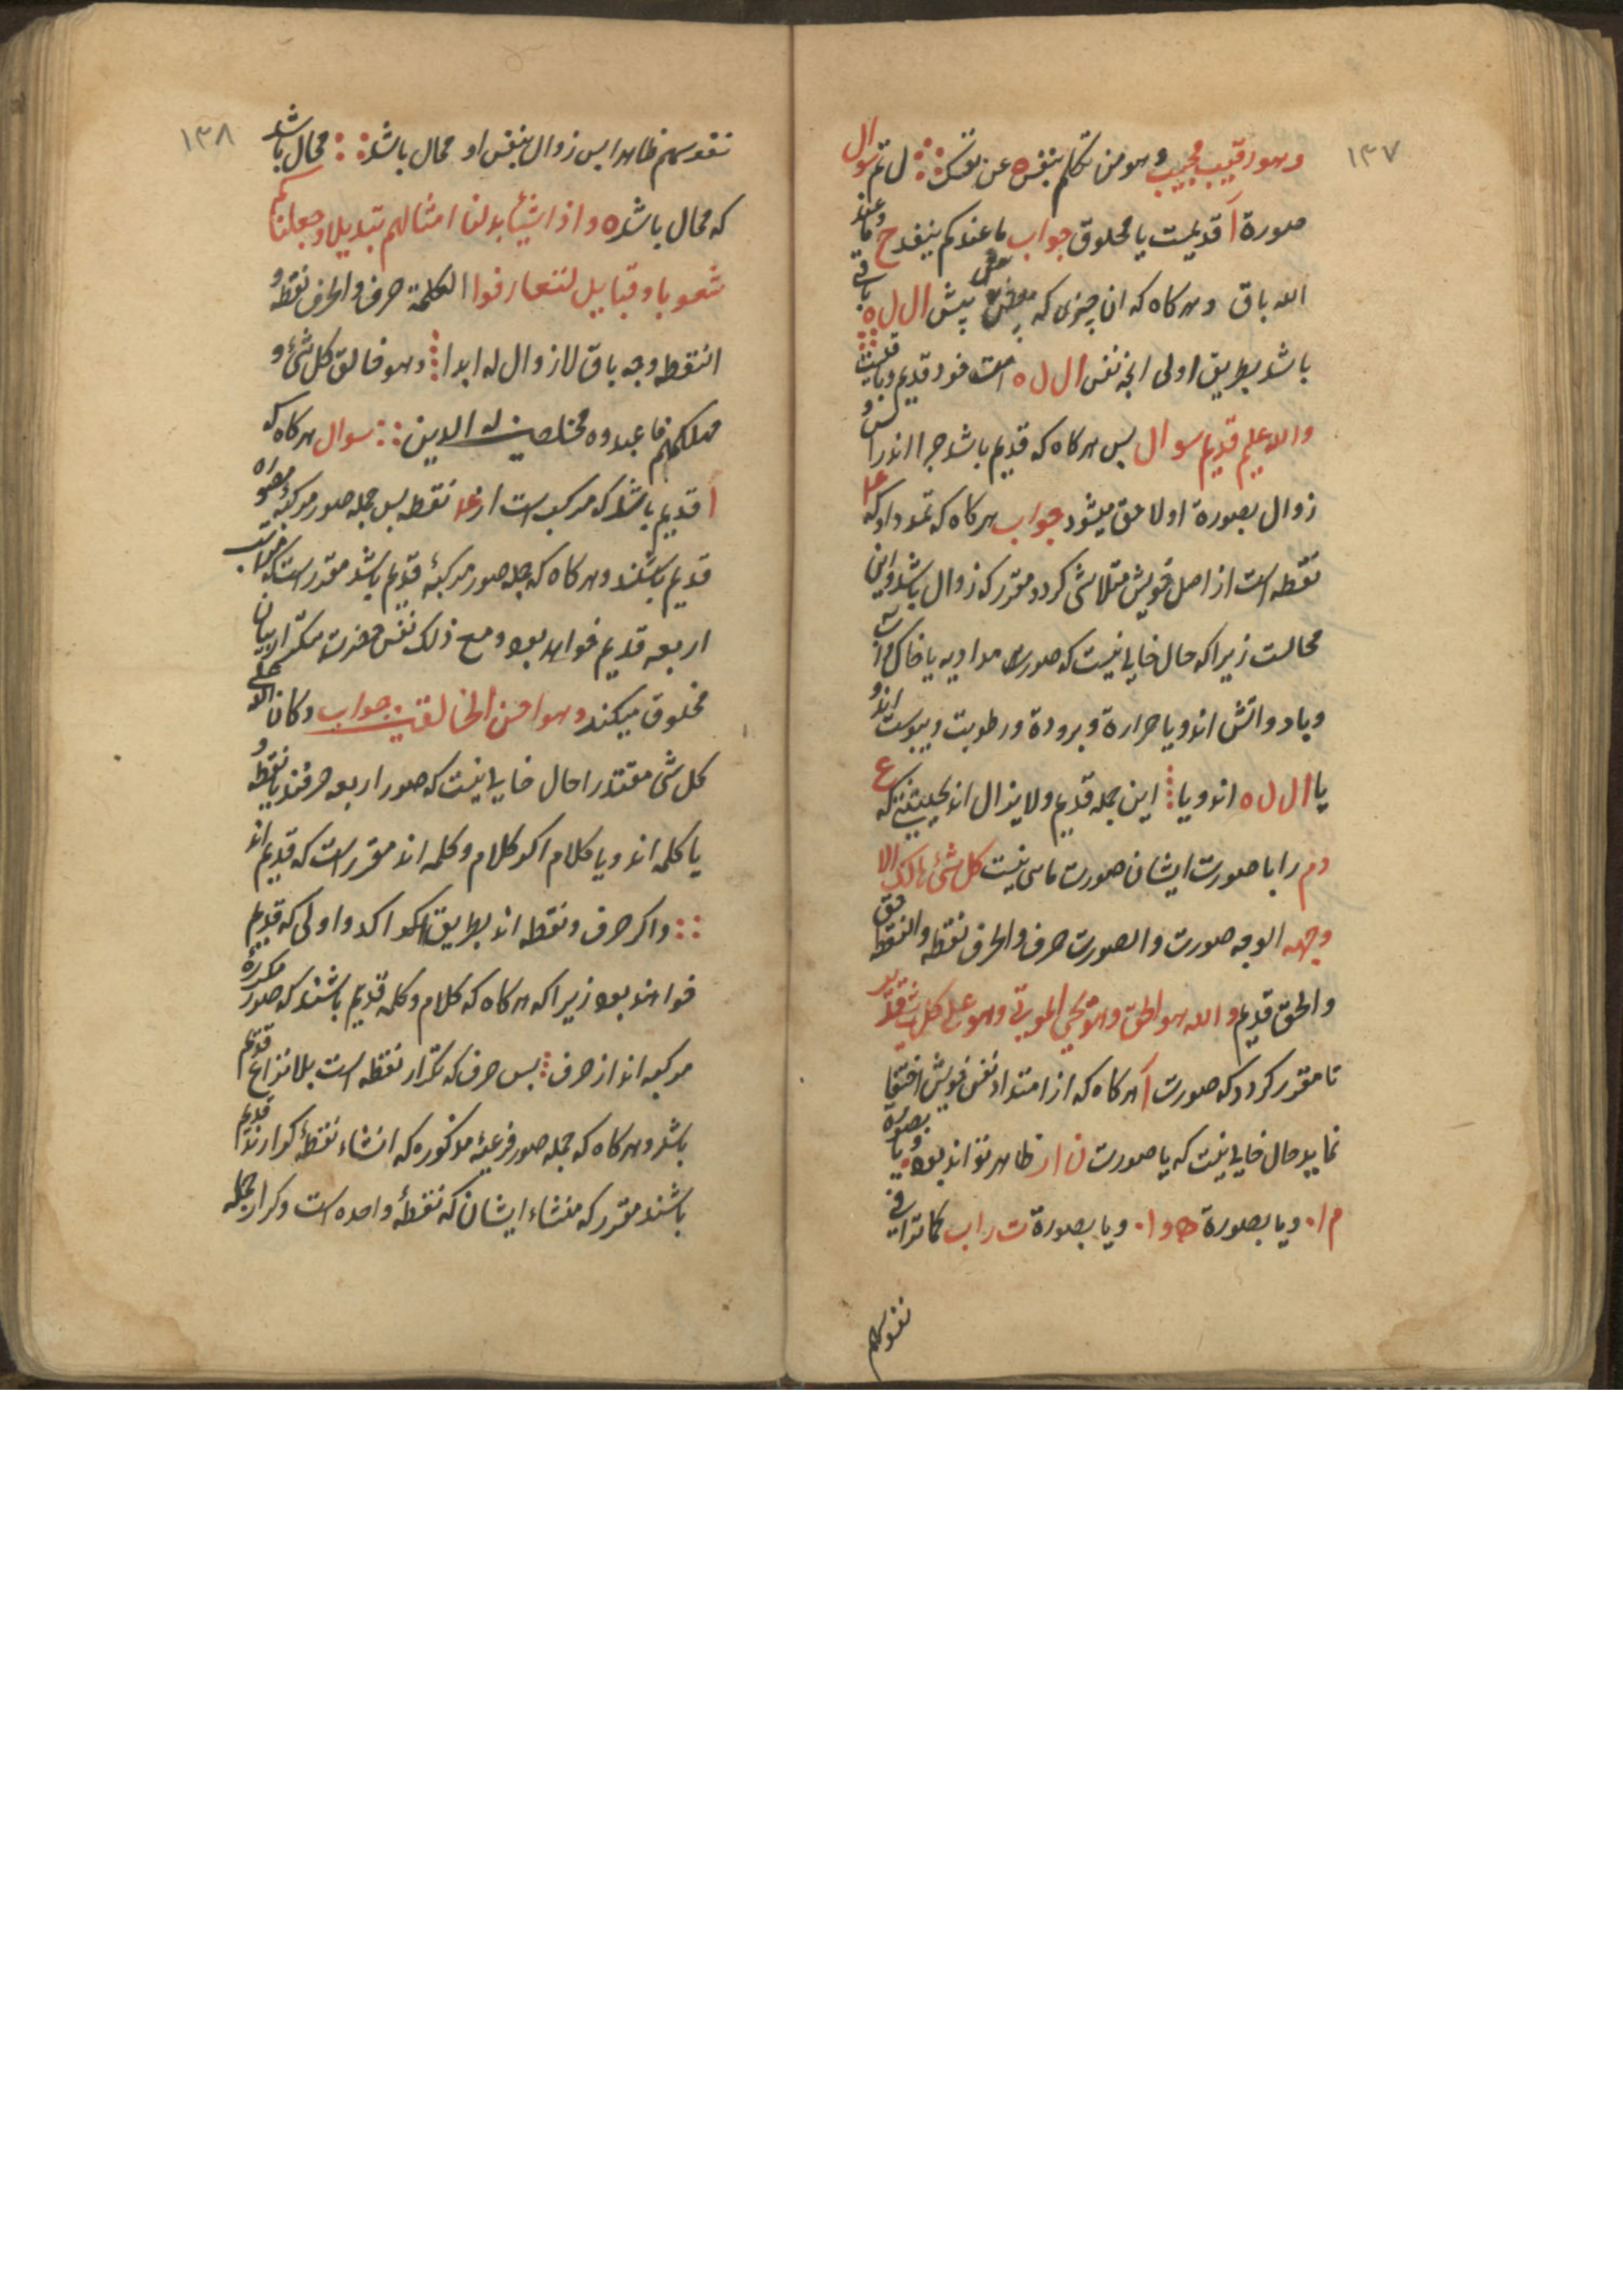 ١٣٧
وهو رقیب مجیب وهو من تکلم بنفسه عن نفسک ل تم سوال
صورة آ قدیمست یا مخلوق جواب ما عندکم ینفد ح وما عند
الله باق وهرکاه که ان چیزی که پیش ال ل ه باقی
باشد بطریق اولی انچه نفس ال ل ه است خود قدیم و باقیست
والله علیم قدیم سوال پس هرکاه که قدیم باشد چرا انرا
زوال بصورة اولا حق میشود جواب هرکاه که نمود داد که
نقطه است از اصل خویش متلاشی کردد مقرر که زوال باشد و این
محالست زیرا که حال خالی نیست که صورت مدادیه یا خاک و اب
و باد و اتش اند و یا حرارة و برودة و رطوبت و یبوست اند و
یا ال ل ه اند و یا این جمله قدیم و لا یزال اند بحیثیتی که ع
دم را با صورت ایشان صورت ماسی نیست کل شئ هالک الا
وجهه الوجه صورت والصورت حرف والحرف نقطه والنقطه حق
والحق قدیم والله هو الحق وهو یحیی الموتی وهو علی کل شئ قدیر
تا مقرر کردد که صورت آ هرکاه که از امتداد نفس خویش اختفا
نماید حال خالی نیست که یا صورت ن ا ر ظاهر تواند بود و یا بصورة
م ا۰ و یا بصورة ه و ا۰ و یا بصورة ت ر ا ب کما ترا فی
نفوسهم
١٣٨
نفوسهم ظاهرا پس زوال بنفس او محال باشد محال باشد
که محال باشد ه واذا شئنا بدلنا امثالهم تبدیلا وجعلناکم
شعوبا وقبایل لتعارفوا الکلمة حرف والحرف نقطه و
النقطه وجه باق لا زوال له ابدا وهو خالق کل شئ و
مهلکهم فاعبدوه مخلصین له الدین سوال هرکاه که
آ قدیم باشد که مرکبست از نقطه پس جمله صور مرکبه
قدیم باشند وهرکاه که جمله صور مرکبه قدیم باشد مقرر است که
اربعه قدیم خواهد بود ومع ذلک نفس حضرت
مخلوق میکند وهو احسن الخالقین جواب وکان الله علی
کل شئ مقتدرا حال خالی نیست که صور اربعه حرفند یا نقطه و
یا کلمه اند و یا کلام اکر کلام و کلمه اند مقرر است که قدیم اند
واکر حرف و نقطه اند بطریق اکد و اولی که قدیم
خواهند بود زیرا که هرکاه که کلام و کلمه قدیم باشند که صور مکرره
مرکبه اند از حرف پس حرف که تکرار نقطه است بلا نزاع قدیم
باشد وهرکاه که جمله صور فرعیه مذکوره که انشاء نقطه کوارند قدیم
باشند مقرر که منشاء ایشان که نقطه واحده است و کرار جمله